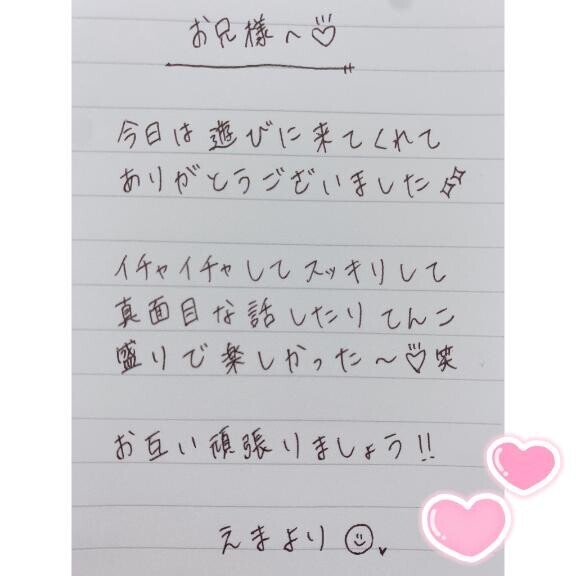 お兄様へ♡
今日は遊びに来てくれて
ありがとうございました✨
イチャイチャしてスッキリして
真面目な話したりてんこ
盛りで楽しかった〜♡笑
お互い頑張りましょう!!
えまより☺♥